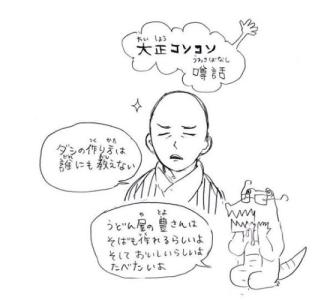 大正コソコソ
噂話
ダシの作り方は
誰にも教えない
うどん屋の豊さんは
そばも作れるらしいよ
そしておいしいらしいよ
たべたいよ